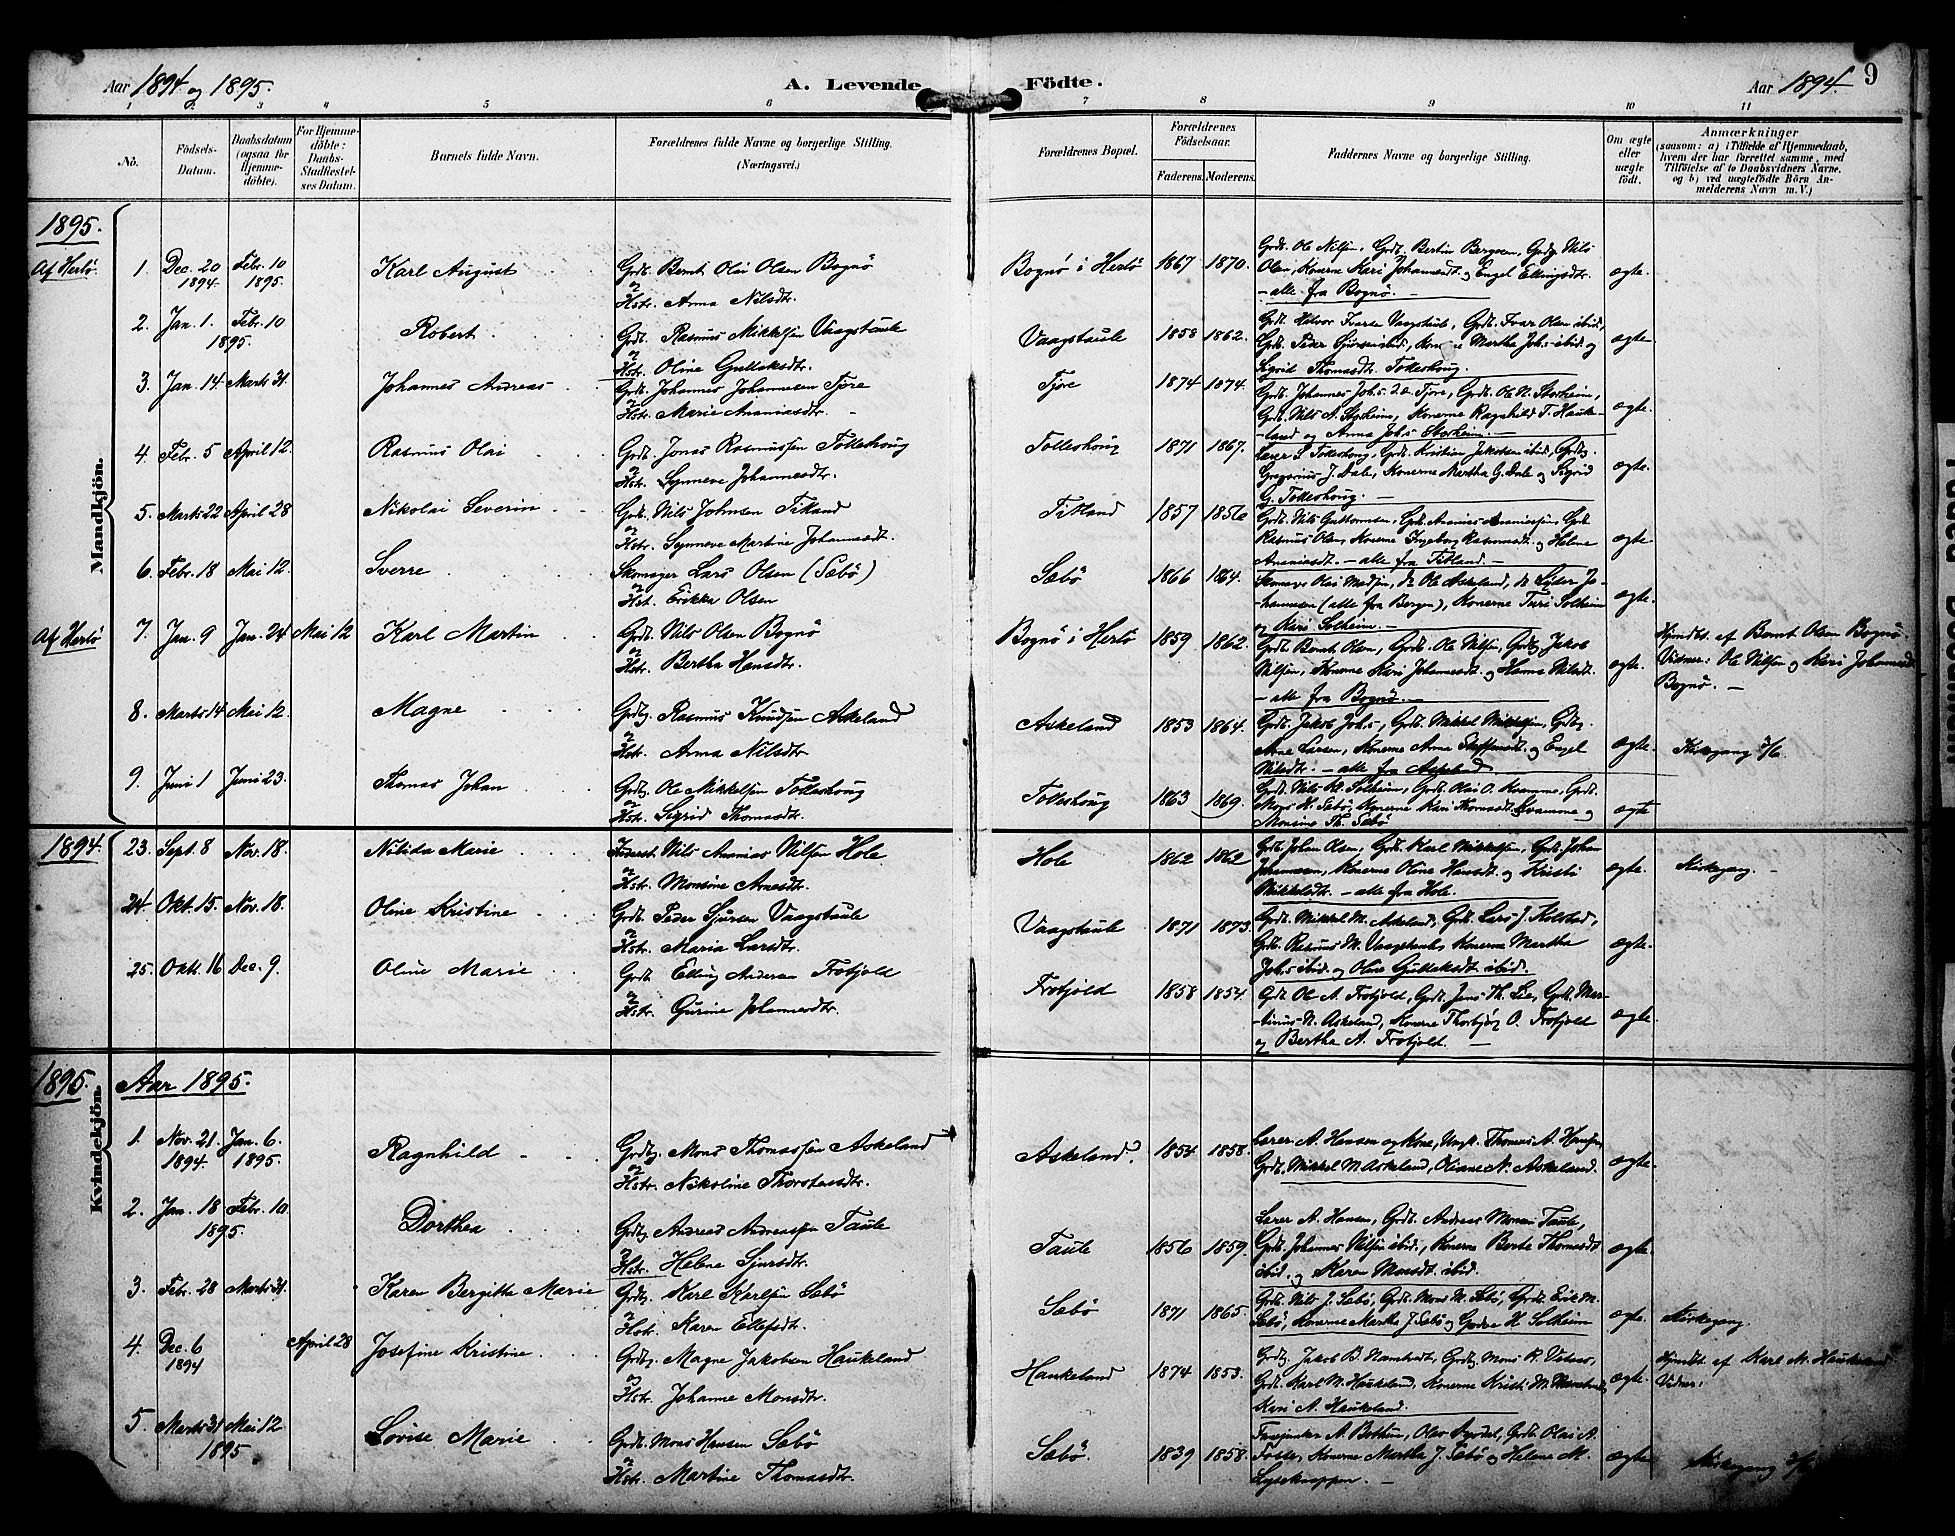 Aar 1894 og 1895. A. Levende Födte. Aar 1894. 9
1 2 3 4 5 6 7 8 9 10 11
No. Födsels-Datum. Daabsdatum (ogsaa for Hjemmedöbte). For Hjemmedöbte: Daabs-Stadfæstelses Datum. Barnets fulde Navn. Forældrenes fulde Navne og borgerlige Stilling. (Næringsvei.) Forældrenes Bopæl. Forældrenes Födselsaar. Faderens. Moderens. Faddernes Navne og borgerlige Stilling. Om ægte eller uægte födt. Anmærkninger (saasom: a) i Tilfælde af Hjemmedaab, hvem der har forrettet samme, med Tilföielse af to Daabsvidners Navne, og b) ved uægtefödte Börn Anmelderens Navn m. V.)
Mandkjön.
1895.
Af Herlö. 1. Dec. 20 1894. Febr. 10 1895. Karl August Grdb. Bernt Olai Olsen Bognö
og Hstr. Anna Nilsdtr. Bognö i Herlö 1867 1870.
Grdb. Ole Nilsen, Grdb. Bertin Bergsen, Grdbg. Nils
Olsen, Konerne Kari Johannesdt. og Engel Ellingsdtr.
– alle fra Bognö. – ægte.
2. Jan. 1. 1895. Febr. 10 Robert Grdb. Rasmus Mikkelsen Vaagstaule
og Hstr. Oline Gulleksdtr. Vaagstaule 1858 1862.
Grdb. Halvor Ivarsen Vaagstaule, Grdb. Ivar Olsen ibid,
Grdb. Peder Sjursen ibid, Konerne Martha Joh.s ibid og
Sigrid Thomasdt. Tolleshoug. ægte.
3. Jan. 14 Marts 31. Johannes Andreas Grdb. Johannes Johannesen Tjore
og Hstr. Marie Ananiasdtr. Tjore 1874 1874.
Grdb. Johannes Joh.s Tjore, Grdb. Ole N. Storheim,
Grdb. Nils A. Storheim, Konerne Ragnhild T. Hauke-
-land og Anna Joh.s Storheim. – ægte.
4. Febr. 5 April 12. Rasmus Olai Grdb. Jonas Rasmussen Tolleshoug
og Hstr. Synneve Johannesdtr. Tolleshoug 1871 1867.
Lærer S. Tolleshoug, Grdb. Kristian Jakobsen ibid, Grdbg.
Gregorius J. Dale, Konerne Martha G. Dale og Sigrid
G. Tolleshoug. – ægte.
5. Marts 22 April 28 Nikolai Severin Grdb. Nils Johnsen Titland
og Hstr. Synneve Martine Johannesdt. Titland 1857 1856
Grdb. Nils Guttormsen, Grdb. Ananias Ananiassen, Grdb.
Rasmus Olsen, Konerne Ingeborg Rasmusdt. og Helene
Ananiasdt. – alle fra Titland. – ægte.
6. Febr. 18 Mai 12. Sverre Skomager Lars Olsen (Sæbö)
og Hst. Erikka Olsen Sæbö 1866 1864.
Skomager Olai Madsen, do Ole Askeland, do Lyder Jo-
-hannesen (alle fra Bergen), Konerne Turi Solheim
og Kari Solheim. – ægte.
Af Herlö 7. Jan. 9 Jan. 24 Mai 12 Karl Martin Grdb. Nils Olsen Bognö
og Hstr. Bertha Hansdtr. Bognö i Herlö 1859 1862.
Grdb. Bernt Olsen, Grdb. Ole Nilsen, Grdbg. Jakob
Nilsen, Konerne Kari Johannesdt. og Hanna Nilsdt.
– alle fra Bognö. – ægte.
Hjmdbt. af Bernt Olsen Bognö.
Vidner: Ole Nilsen og Kari Johannesdt.
Bognö. –
8. Marts 14 Mai 12. Magne Grdbg. Rasmus Knudsen Askeland
og Hstr. Anna Nilsdtr Askeland 1853 1864.
Grdb. Jakob Joh.s, Grdb. Mikkel Mikkelsen, Grdbg.
Arne Larsen, Konerne Anna Steffensdt. og Engel
Nilsdt. – alle fra Askeland. ægte. Kirkegang
9. Juni 1 Juni 23. Thomas Johan Grdbg. Ole Mikkelsen Tolleshoug
og Hstr. Sigrid Thomasdtr. Tolleshoug 1863 1869.
Grdb. Nils K. Solheim, Grdb. Olai O. Kvamme, Grdb.
Mons H. Sæbö, Konerne Kari Thomasdt. Kvamme og
Monsine Th. Sæbö ægte
Kvindekjön.
1894. 23. Sept. 8 Nov. 18. Nilida Marie Inderst. Nils Ananias Nilsen Hole
og Hstr. Monsine Arnesdtr. Hole 1862 1862
Grdb. Johan Olsen, Grdb. Karl Mikkelsen, Grdb. Johan
Johannesen, Konerne Oline Hansdt. og Kristi
Mikkelsdt. – alle fra Hole. ægte. Kirkegang. –
24. Okt. 15. Nov. 18. Oline Kristine Grdb. Peder Sjursen Vaagstaule
og Hstr. Maria Larsdtr. Vaagstaule 1871 1873.
Grdb. Mikkel M. Askeland, Grdb. Lars J. Kolstad,
Grdb. Rasmus M. Vaagstaule, Konerne Martha
Joh.s ibid. og Oline Gulleksdt. ibid. ægte.
25. Okt. 16 Dec. 9. Oline Marie Grdb. Elling Andersen Frotjold
og Hstr. Gurine Johannesdtr. Frotjold 1858 1854.
Grdb. Ole A. Frotjold, Grdb. Jens Th. Lie, Grdb. Mar-
-tinus N. Askeland, Konerne Thorbjög O. Frotjold
og Bertha A. Frotjold. – ægte.
1895. Aar 1895.
1. Nov. 21 1894. Jan. 6. 1895. Ragnhild Grdbg. Mons Thomassen Askeland
og Hstr. Nikoline Thorstensdtr. Askeland. 1854 1858.
Lærer A. Hansen og Kone, Ungk. Thomas A. Hansen,
Grdb. Mikkel M. Askeland, Oliane N. Askeland. ægte.
2. Jan. 18 1895. Febr. 10. Dorthea Grdbg. Andreas Andreassen Taule
og Hstr. Helene Sjursdtr. Taule 1856 1859.
Lærer A. Hansen, Grdb. Andreas Monsen Taule,
Grdb. Johannes Nilsen ibid., Konerne Berte Thomasdt
ibid. og Karen Monsdt. ibid. ægte.
3. Febr. 28 Marts 31. Karen Bergitta Marie Grdbg. Karl Karlsen Sæbö
og Hstr. Karen Ellefsdtr. Sæbö 1871 1865.
Grdb. Nils J. Sæbö, Grdb. Mons M. Sæbö, Grdb. Erik M.
Sæbö, Konerne Martha J. Sæbö og H. Solheim ægte. Kirkegang.
4. Dec. 6 1894 April 28 Josefine Kristine Grdbg. Magne Jakobsen Haukeland
og Hstr. Johanne Monsdtr. Haukeland 1874 1853.
Grdbg. Jakob B. Namtvedt, Grdbg. Mons K.
Grdb. Karl M. Haukeland, Konerne Kristi M.
Kari A. Haukeland. ægte.
Hjmdbt. af Karl M. Haukeland
Vidner:
5. Marts 31 1895 Mai 12 Lovise Marie Grdb. Mons Hansen Sæbö
og Hstr. Martine Thomasdtr. Sæbö. 1839 1858.
A. Bottun, Grdb. Olai A.
Fosse, Konerne Martha J. Sæbö og Helene M.
ægte Kirkegang